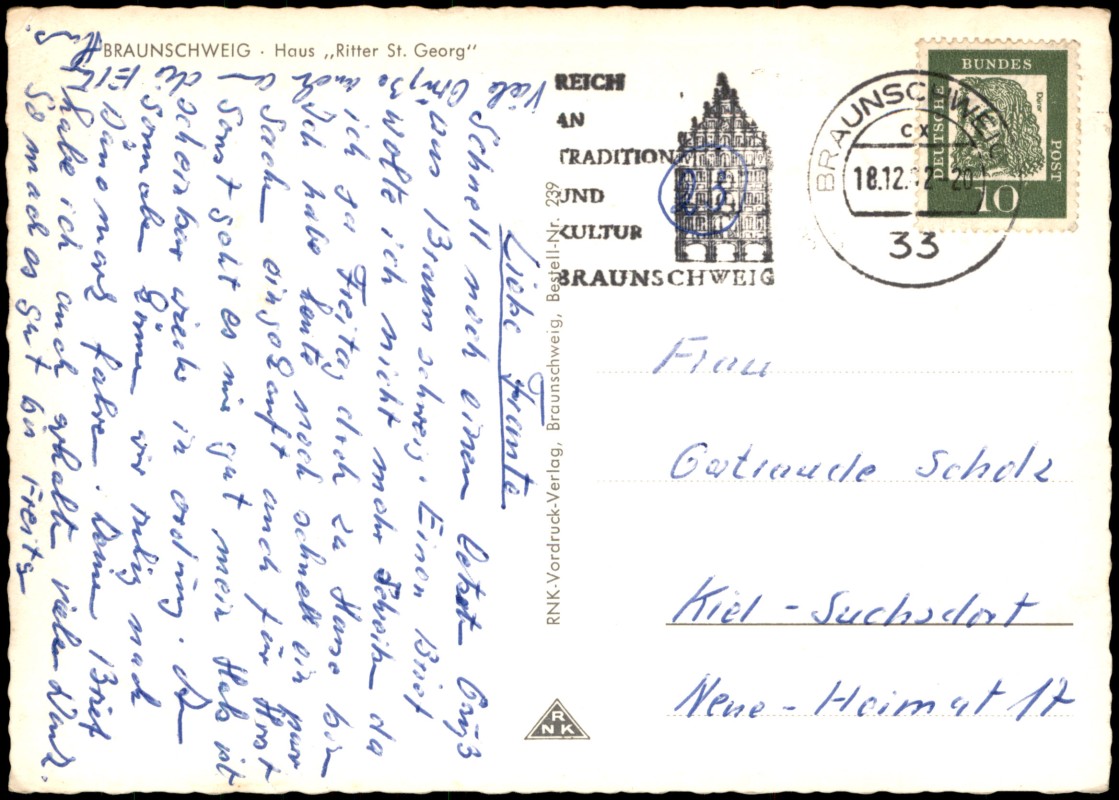 BRAUNSCHWEIG · Haus „Ritter St. Georg"
REICH
AN
TRADITION
UND
KULTUR
BRAUNSCHWEIG
25
BRAUNSCHWEIG
cx
18.12. 2-20
33
DEUTSCHE
BUNDES
POST
Dürer
10
Liebe Traute
Schnell noch einen letzt Grüß
aus Braunschweig. Einen Brief
wollte ich nicht mehr schreiben da
ich ja Freitag doch zu Hause bin
Ich habe heute noch schnell ein paar
Sachen eingekauft auch für Horst
Sonst geht es mir gut mein Hals ist
scheinbar wieder in ordnung.
Sonnabe könn wir ruhig nach
Dänemark fahren. Deinen Brief
habe ich auch erhalten vielen Dank.
So mach es gut bis Freitag
Viele Grüße auch
an die Elt
RNK-Vordruck-Verlag, Braunschweig, Bestell-Nr. 239
RNK
Frau
Gertraude Scholz
Kiel - Suchsdorf
Neue - Heimat 17